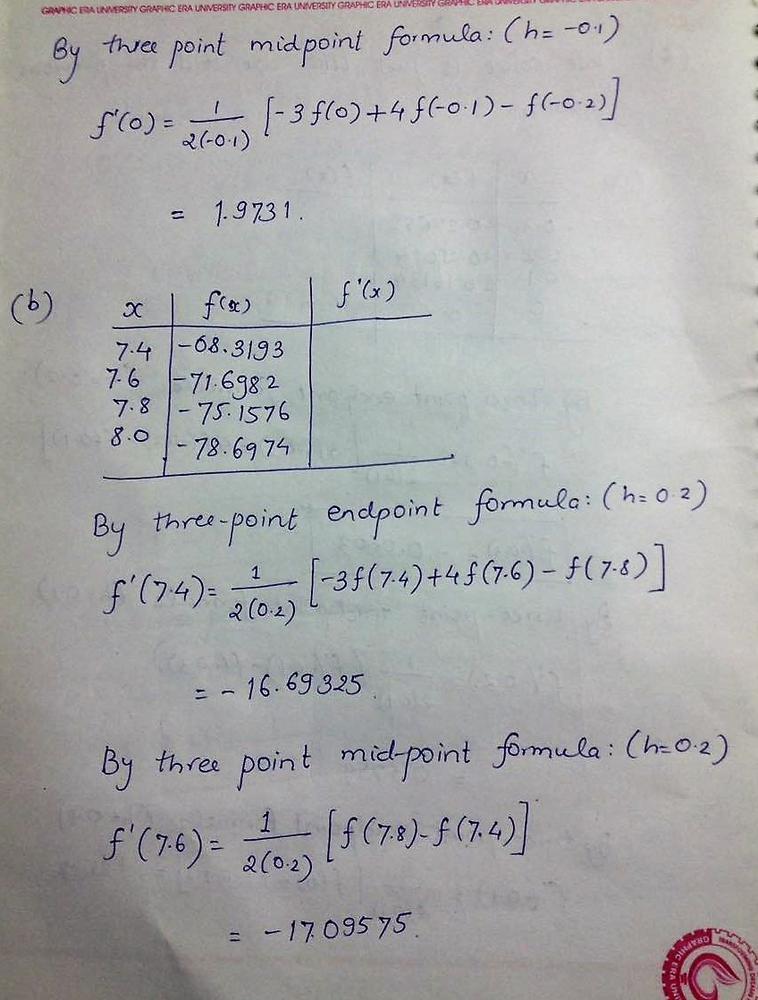 GRAPHIC ERA UNIVERSITY GRAPHIC ERA UNIVERSITY GRAPHIC ERA UNIVERSITY GRAPHIC ERA UNIVERSITY GRAPHIC ERA UNIVERSITY GRAPHIC ERA UNIVERSITY
By three point midpoint formula: (h= -0.1)
f'(0) = 1/2(-0.1) [-3f(0)+4f(-0.1) - f(-0.2)]
= 1.9731.
(b) x | f(x) | f'(x)
7.4 | -68.3193
7.6 | -71.6982
7.8 | -75.1576
8.0 | -78.6974
By three-point endpoint formula: (h=0.2)
f'(7.4)= 1/2(0.2) [-3f(7.4)+4f(7.6)- f(7.8)]
= -16.69325.
By three point mid-point formula: (h=0.2)
f'(7.6)= 1/2(0.2) [f(7.8)-f(7.4)]
= -17.09575.
GRAPHIC ERA UN